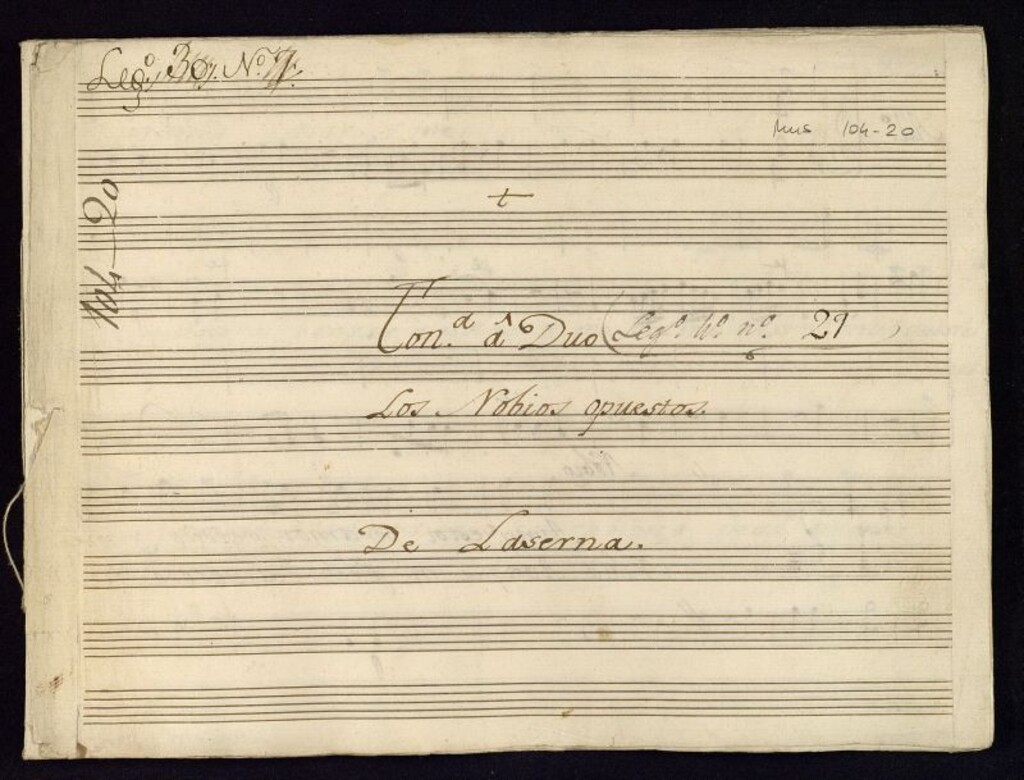 Leg.º 30. N.º 7.
Mus 104-20
t
104-20
Ton.d à Duo (Leg.º 4.º n.º 21)
6
Los Nobios opuestos.
De Laserna.